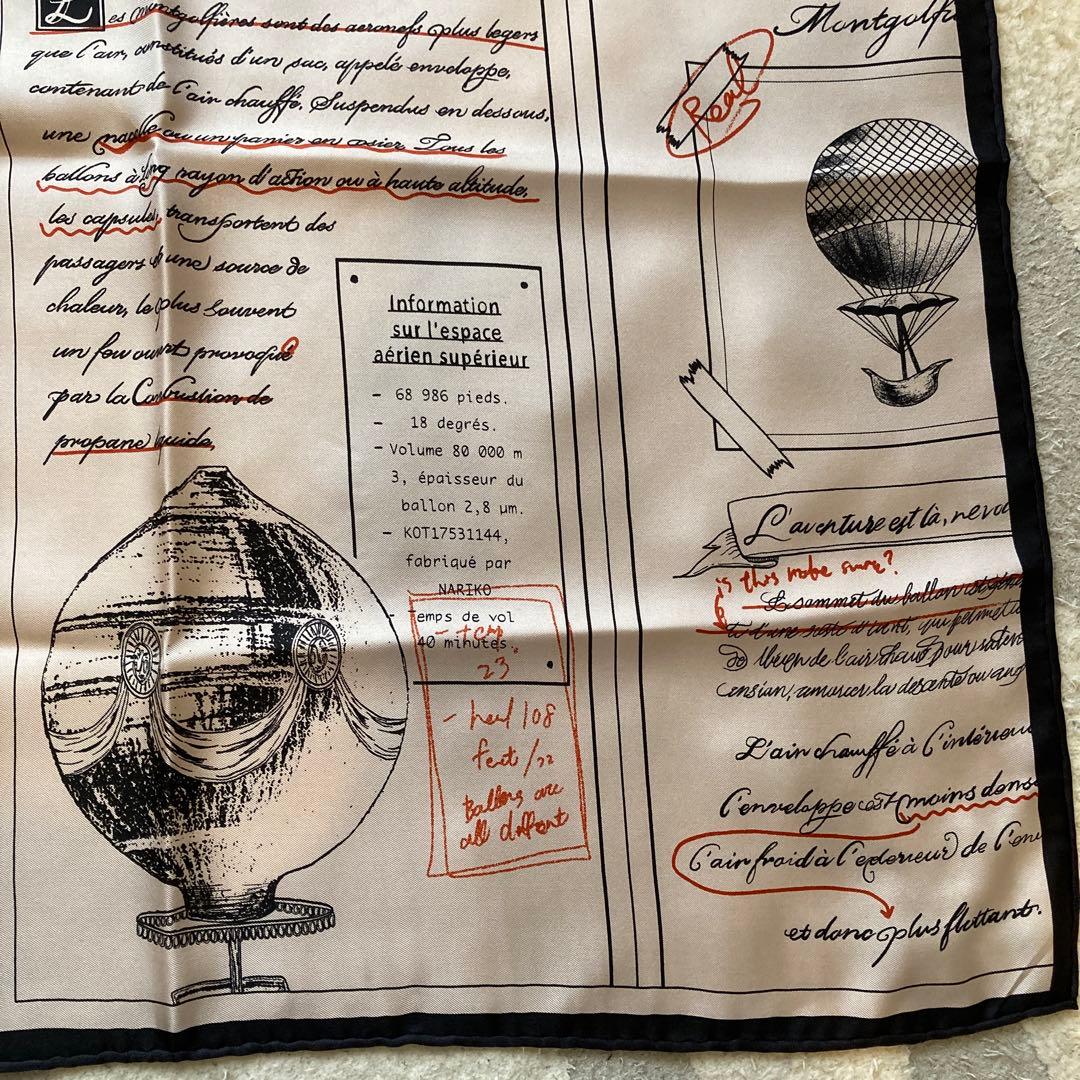 Les montgolfières sont des aeronefs plus legers
que l'air, constitués d'un sac, appelé enveloppe,
contenant de l'air chauffé. Suspendus en dessous,
une nacelle ou un panier en osier Tous les
ballons à long rayon d'action ou à haute altitude,
les capsules transportent des
passagers une source de
chaleur, le plus souvent
un feu ouvert provoqué
par la Combustion de
propane liquide,
Information
sur l'espace
aérien supérieur
- 68 986 pieds.
- 18 degrés.
- Volume 80 000 m
3, épaisseur du
ballon 2,8 µm.
- KOT17531144,
fabriqué par
NARIKO
emps de vol
40 minutes.
23
108
Ballons are
all
Montgolfi
Real
L'aventure est là, ne
is this note sure?
Le sommet du ballon
de l'air chaud pour
la descente ou
L'air chauffé à l'intérieu
l'enveloppe est moins dens
l'air froid à l'exterieur de l'en
et donc plus flottant.